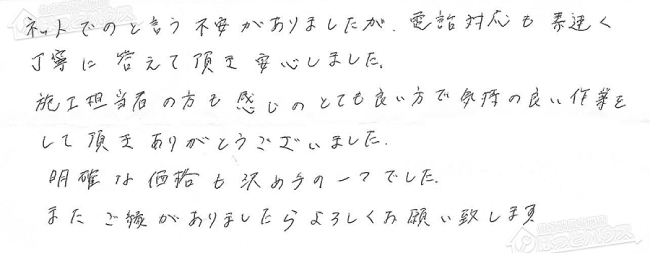 ネットでのと言う不安がありましたが、電話対応も素速く
丁寧に答えて頂き安心しました。
施工担当者の方も感じのとても良い方で気持の良い作業を
して頂きありがとうございました。
明確な価格も決め手の一つでした。
またご縁がありましたらよろしくお願い致します